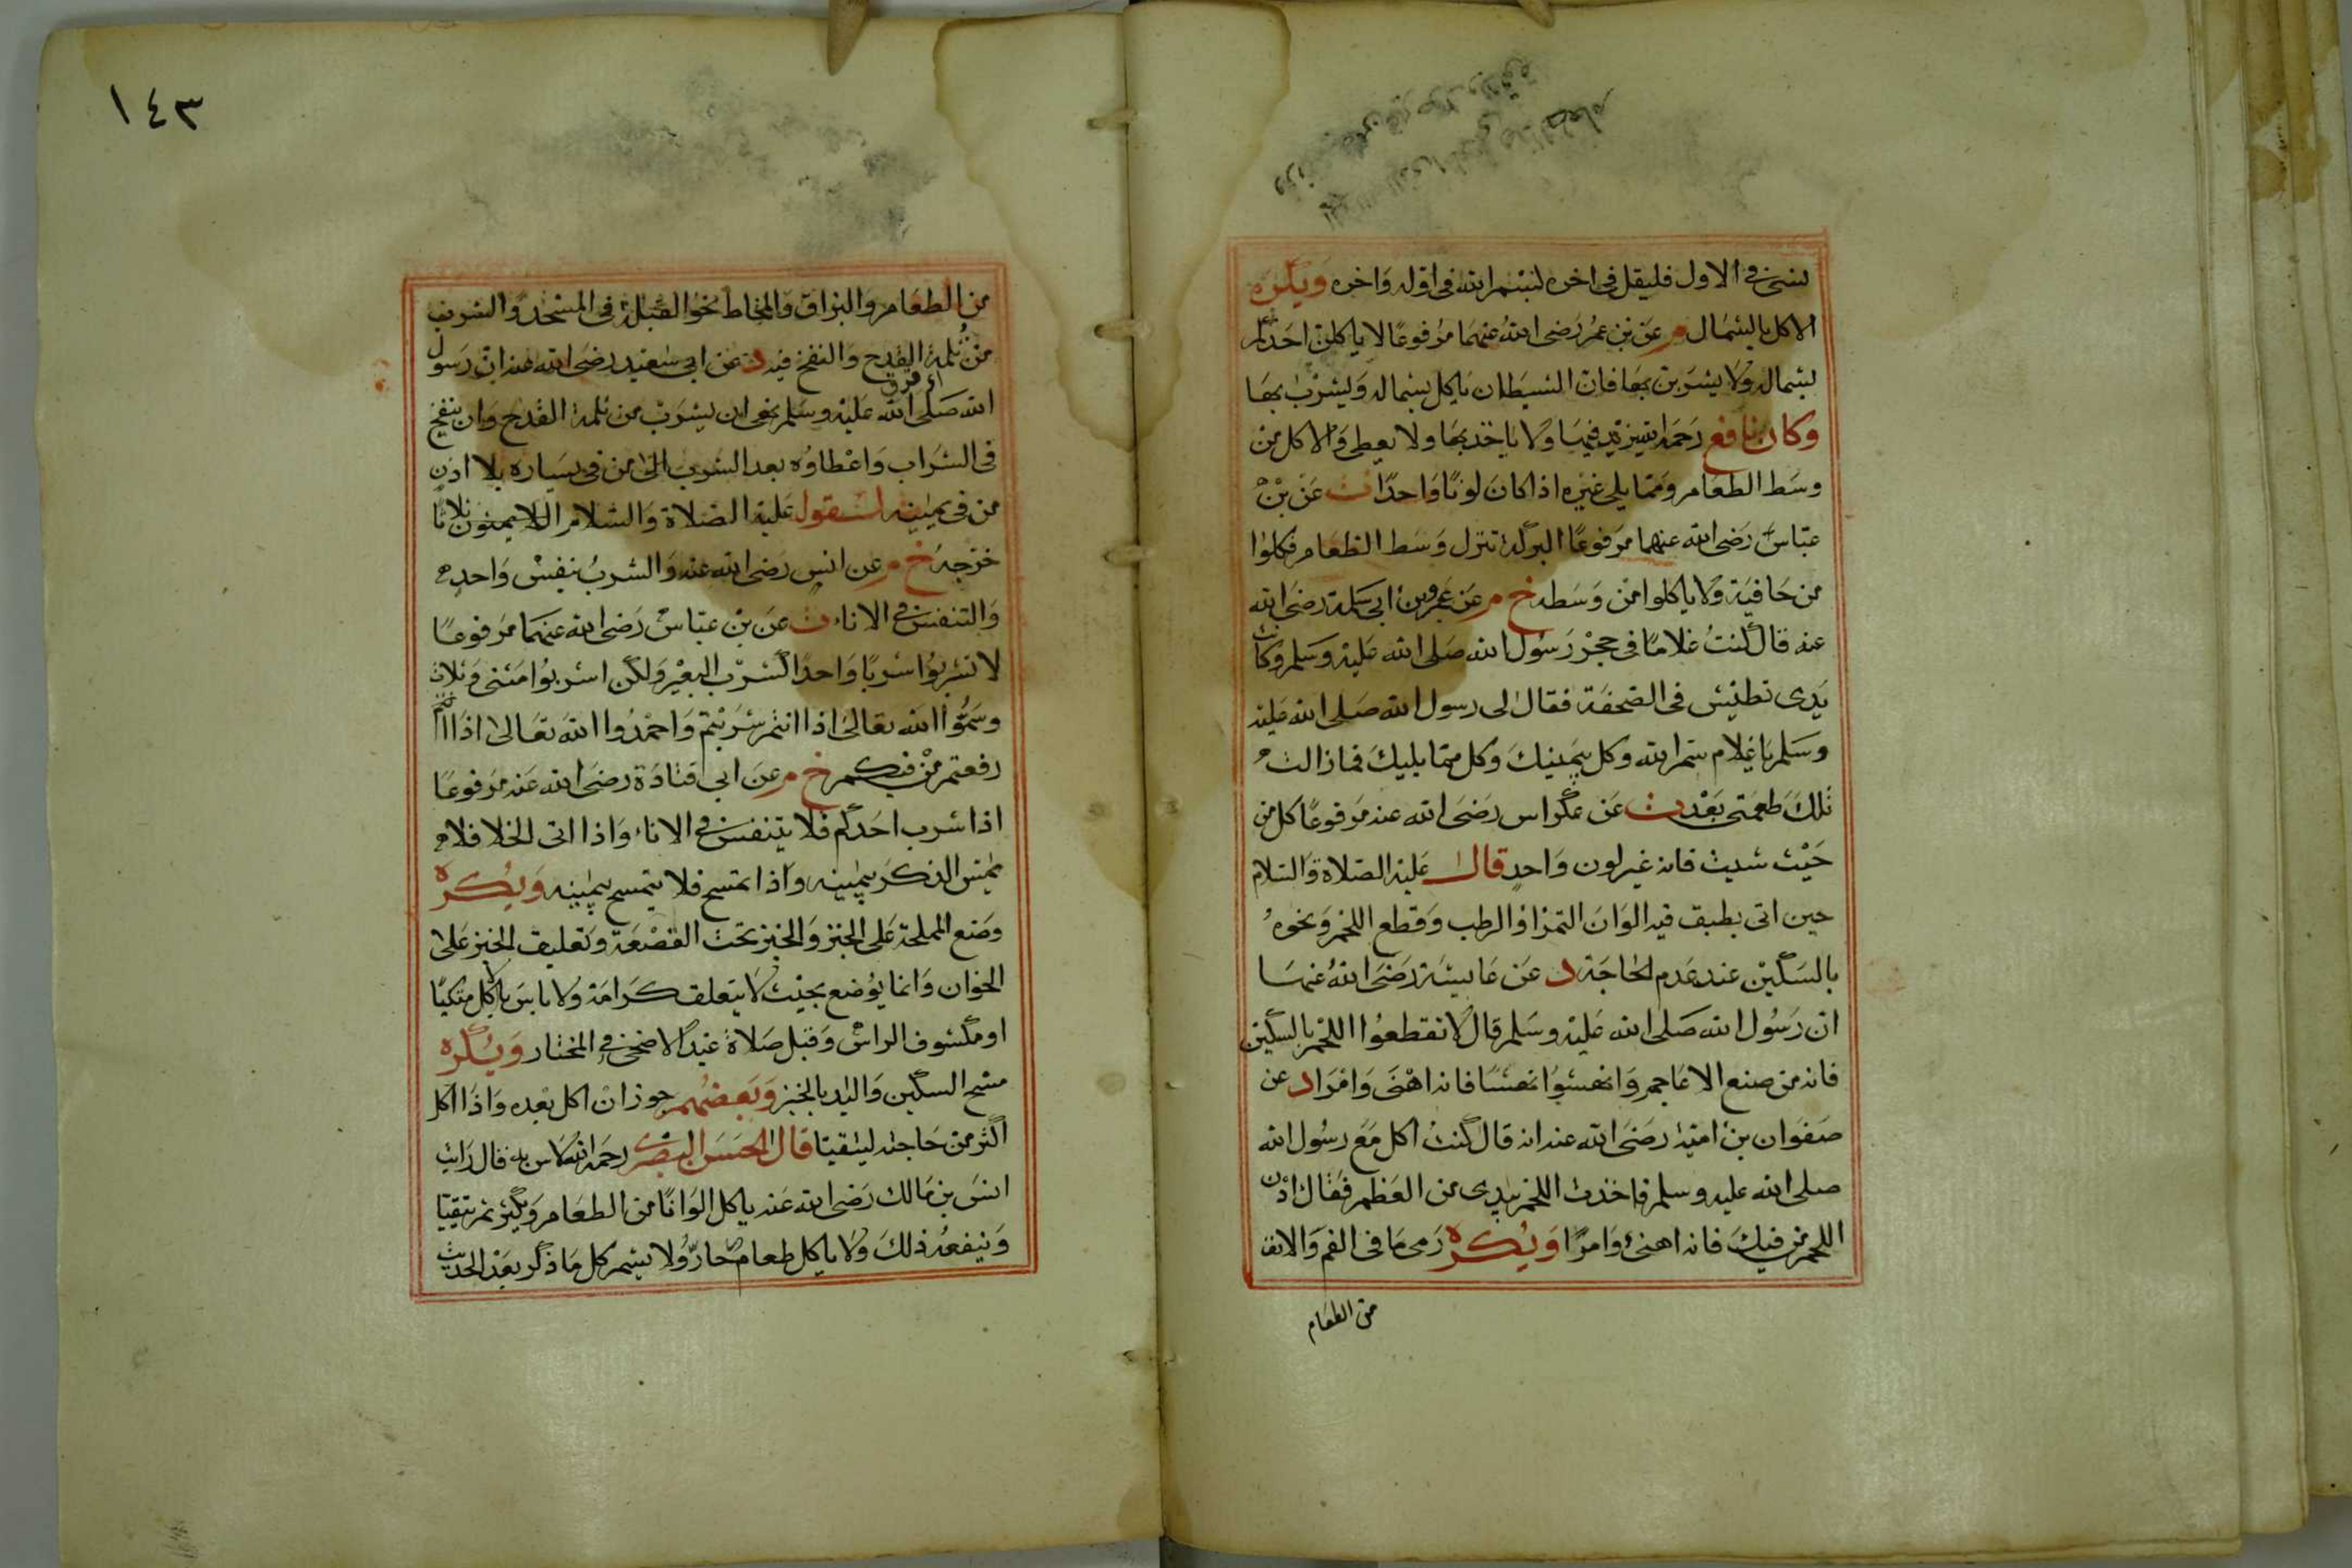 نسى فى الاول فليقل فى اخره لبسم الله فى اوله واخره ويكره
الاكل بالشمال م عن بن عمر رضى الله عنهما مرفوعا لا ياكلن احدكم
بشماله ولا يشربن بها فان الشيطان ياكل بشماله ويشرب بها
وكان نافع رحمه الله يزيد فيها ولا ياخذ بها ولا يعطى والاكل من
وسط الطعام ومما يلى غيره اذا كان لونا واحدا ت عن بن
عباس رضى الله عنهما مرفوعا البركة تنزل وسط الطعام فكلوا
من حافيته ولا ياكلوا من وسطه خ م عن عمرو بن ابى سلمة رضى الله
عنه قال كنت غلاما فى حجر رسول الله صلى الله عليه وسلم وكانت
يدى تطيش فى الصحفة فقال لى رسول الله صلى الله عليه
وسلم يا غلام سم الله وكل بيمينك وكل مما يليك فما زالت
تلك طعمتى بعد ت عن عكراس رضى الله عنه مرفوعا كل من
حيث شيت فانه غير لون واحد قال عليه الصلاة والسلام
حين اتى بطبق فيه الوان التمر او الرطب وقطع اللحم ونحوه
بالسكين عند عدم الحاجة د عن عايشة رضى الله عنها
ان رسول الله صلى الله عليه وسلم قال لا تقطعوا اللحم بالسكين
فانه من صنع الاعاجم وانهشوا نهشا فانه اهنى وامرا د عن
صفوان بن امية رضى الله عنه انه قال كنت اكل مع رسول الله
صلى الله عليه وسلم فاخذت اللحم بيدى من العظم فقال ادن
اللحم من فيك فانه اهنئ وامرا ويكره رمى ما فى الفم والانف
من الطعام
١٤٣
من الطعام والبزاق والمخاط نحو القبلة فى المسجد والشرب
من ثلمة القدح والنفخ فيه د عن ابى سعيد رضى الله عنه ان رسول
الله صلى الله عليه وسلم نهى ان يشرب من ثلمة القدح وان ينفخ
فى الشراب واعطاوه بعد الشرب الى من فى يساره بلا اذن
من فى يمينه لقوله عليه الصلاة والسلام الايمنون ثلاثا
خرجه خ م عن انس رضى الله عنه والشرب بنفس واحد
والتنفس فى الاناء ت عن بن عباس رضى الله عنهما مرفوعا
لا تشربوا شربا واحدا كشرب البعير ولكن اشربوا مثنى وثلاث
وسموا الله تعالى اذا انتم شربتم واحمدوا الله تعالى اذا انتم
رفعتم من فيكم خ م عن ابى قتادة رضى الله عنه مرفوعا
اذا شرب احدكم فلا يتنفس فى الاناء واذا اتى الخلا فلا
يمس الذكر بيمينه واذا تمسح فلا يتمسح بيمينه ويكره
وضع المملحة على الخبز والخبز تحت القصعة وتعليق الخبز على
الخوان وانما يوضع بحيث لا يتعلق كرامة ولا باس باكل متكيا
او مكشوف الراس وقبل صلاة عيد الاضحى فى المختار ويكره
مسح السكين واليد بالخبز وبعضهم جوز ان اكل بعده واذا اكل
اكثر من حاجته ليتقيا قال الحسن البصرى رحمه الله لا باس به قال رايت
انس بن مالك رضى الله عنه ياكل الوانا من الطعام ويكثر ثم يتقيا
وينفعه ذلك ولا ياكل طعام حار ولا يشم كل ما ذكر بعد الحديث